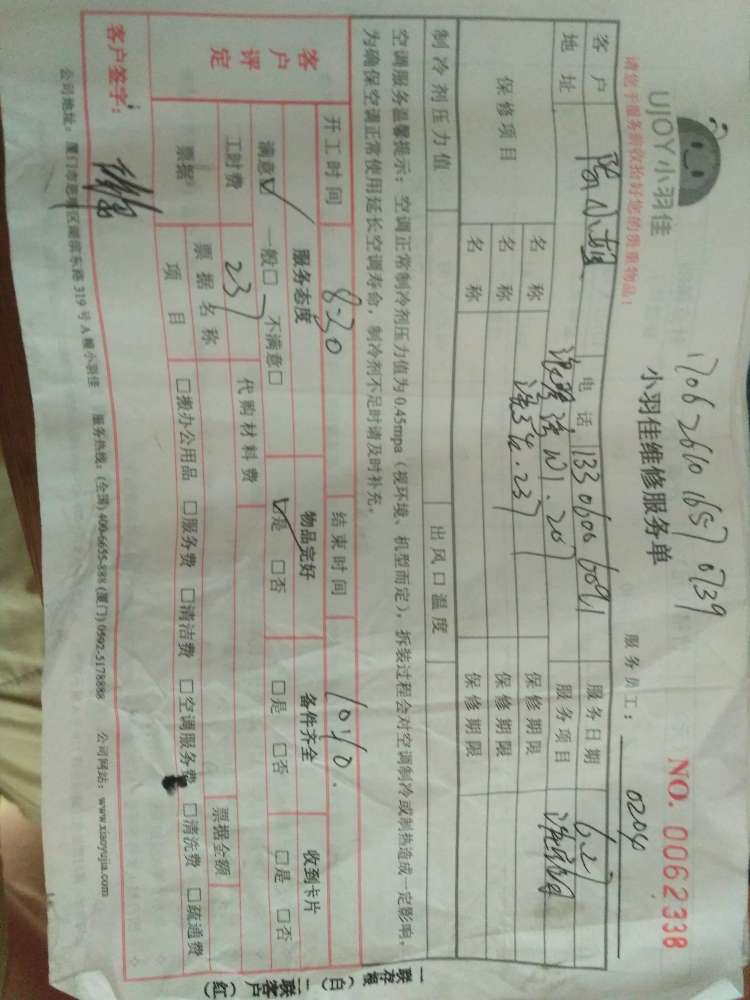 1706 2610 1657 0739
UJOY小羽佳
小羽佳维修服务单
NO. 0062338
请您于服务前收拾好您的贵重物品!
服务员工: 0204
客户 电话 服务日期 6.27
地址 服务项目
保修项目 名称 保修期限
名称 保修期限
名称 保修期限
制冷剂压力值 出风口温度
空调服务温馨提示:空调正常制冷剂压力值为0.45mpa(视环境、机型而定),拆装过程会对空调制冷或制热造成一定影响,
为确保空调正常使用延长空调寿命,制冷剂不足时请及时补充。
开工时间 8:30 结束时间 10:40.
客户评定 服务态度 物品完好 备件齐全 收到卡片
满意☑ 一般□ 不满意□ ☑是 □否 □是 □否 □是 □否
工时费 237 代购材料费
票据 票据名称 票据金额
项目 □搬办公用品 □服务费 □清洁费 □空调服务费 □清洗费 □疏通费
客户签字:
公司地址:厦门市思明区湖滨东路319号A幢小羽佳 服务热线:(全国)400-6655-888(厦门)0592-5178888 公司网站:www.xiaoyujia.com
一联存根(白) 二联客户(红)